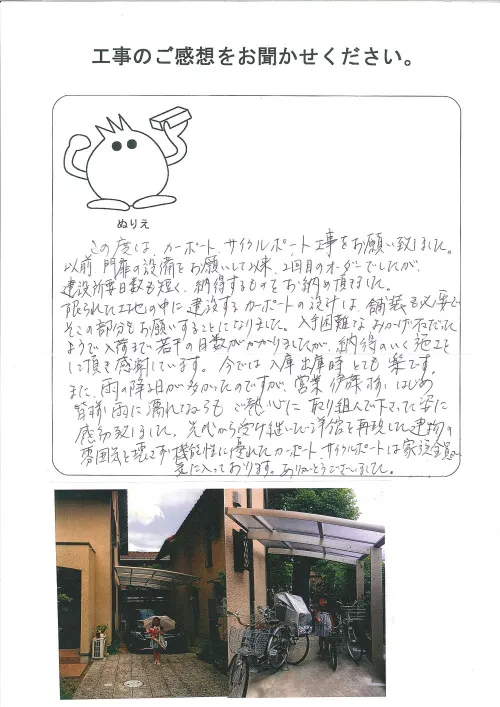 工事のご感想をお聞かせください。
ぬりえ
この度は、カーポート、サイクルポート工事をお願い致しました。
以前、門扉の設備をお願いして以来、2回目のオーダーでしたが、
建設所要日数も短く、納得するものをお納め頂きました。
限られた土地の中に建設するカーポートの設計は、舗装も必要で
そこの部分もお願いすることになりました。入手困難な
ようで入荷まで若干の日数がかかりましたが、納得のいく施工を
して頂き感謝しています。今では入庫出庫時とても楽です。
また、雨の降る日が多かったのですが、営業 伊藤様、はじめ
皆様雨に濡れながらも ご熱心に取り組んで下さった姿に
感動致しました。先代から受け継いだ洋館を再現した建物の
雰囲気を壊さず機能性に優れたカーポート サイクルポートは家族全員
気に入っております。ありがとうございました。